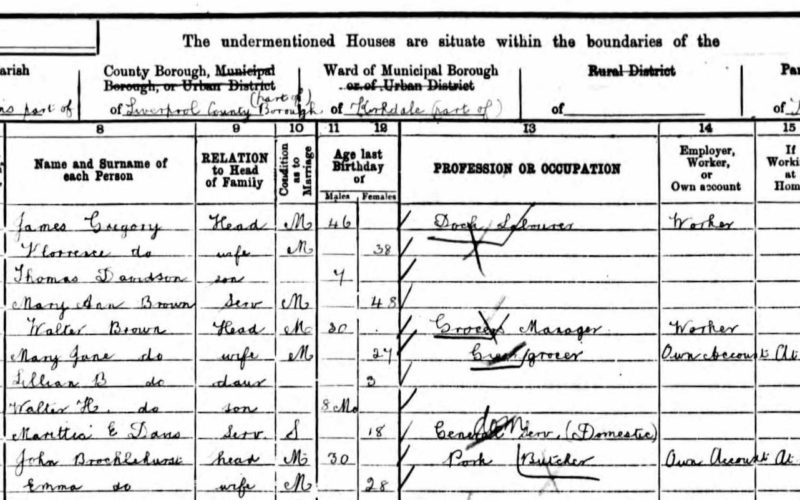 The undermentioned Houses are situate within the boundaries of the
arish County Borough, Municipal Borough, or Urban District Ward of Municipal Borough or of Urban District Rural District Par
is part of of Liverpool County Borough (part of) of Kirkdale (part of) of of
8 9 10 11 12 13 14 15
Name and Surname of each Person RELATION to Head of Family Condition as to Marriage Age last Birthday of Males Females PROFESSION OR OCCUPATION Employer, Worker, or Own account If Worki at Hom
James Gregory Head M 46 Dock Labourer Worker
Florence do wife M 38
Thomas Davidson son 7
Mary Ann Brown Serv M 48
Walter Brown Head M 30 Grocers Manager Worker
Mary Jane do wife M 27 Green grocer Own Account At
Lillian B do daur 3
Walter H. do son 8 Mo
E Serv. S 18 General Serv. (Domestic)
John Brocklehurst head M 30 Pork Butcher Own Account At
Emma do wife M 28